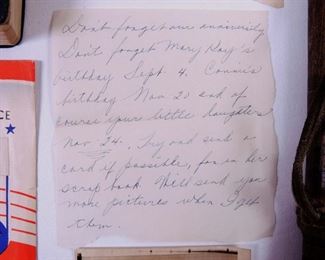 Don't forget our anniversity
Don't forget Mary Kay's
birthday Sept 4. Connie's
birthday Nov 20 and of
course your little daughters
Nov 24. Try and send a
card if possible, for in her
scrap book. Will send you
more pictures when I get
them.
CE